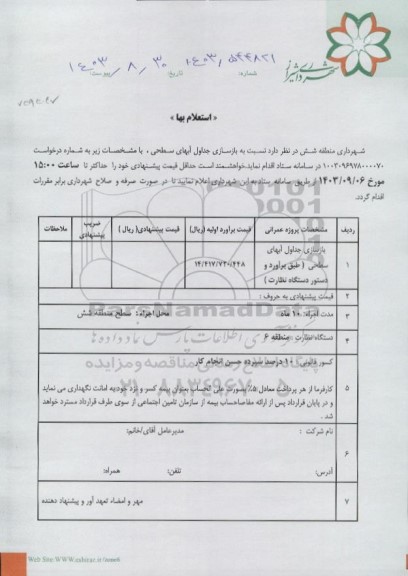 شهرداری شیراز
شماره: ۱۴۰۳/۵۴۴۸۲۱
تاریخ: ۱۴۰۳/۸/۳۰
پیوست:
« استعلام بها »
شهرداری منطقه شش در نظر دارد نسبت به بازسازی جداول آبهای سطحی ، با مشخصات زیر به شماره درخواست
۱۱۰۰۳۰۹۶۹۷۸۰۰۰۰۷۰ در سامانه ستاد اقدام نماید.خواهشمند است حداقل قیمت پیشنهادی خود را حداکثر تا ساعت ۱۵:۰۰
مورخ ۱۴۰۳/۰۹/۰۶ از طریق سامانه ستاد به این شهرداری اعلام نمایید تا در صورت صرفه و صلاح شهرداری برابر مقررات
اقدام گردد.
ردیف مشخصات پروژه عمرانی قیمت برآورد اولیه (ریال) قیمت پیشنهادی( ریال ) ضریب پیشنهادی ملاحظات
۱ بازسازی جداول آبهای سطحی ( طبق برآورد و دستور دستگاه نظارت ) ۱۴/۲۱۷/۷۲۰/۴۴۸
۲ قیمت پیشنهادی به حروف :
۳ مدت اجراء: ۱۰ ماه محل اجراء : سطح منطقه شش
۴ دستگاه نظارت: منطقه ۶
۵ کسور قانونی : ۱۰ درصد سپرده حسن انجام کار
کارفرما از هر پرداخت معادل ۵٪ بصورت علی الحساب بعنوان بیمه کسر و نزد خود به امانت نگهداری می نماید
و در پایان قرارداد پس از ارائه مفاصاحساب بیمه از سازمان تامین اجتماعی از سوی طرف قرارداد مسترد خواهد
شد .
۶ نام شرکت : مدیرعامل آقای/خانم:
آدرس: تلفن: همراه:
۷ مهر و امضاء تعهد آور و پیشنهاد دهنده
ParsNamadData
پایگاه اطلاع رسانی مناقصه و مزایده
۰۲۱-۸۸۳۴۹۶۷۰-۵
Web Site:WWW.eshiraz.ir